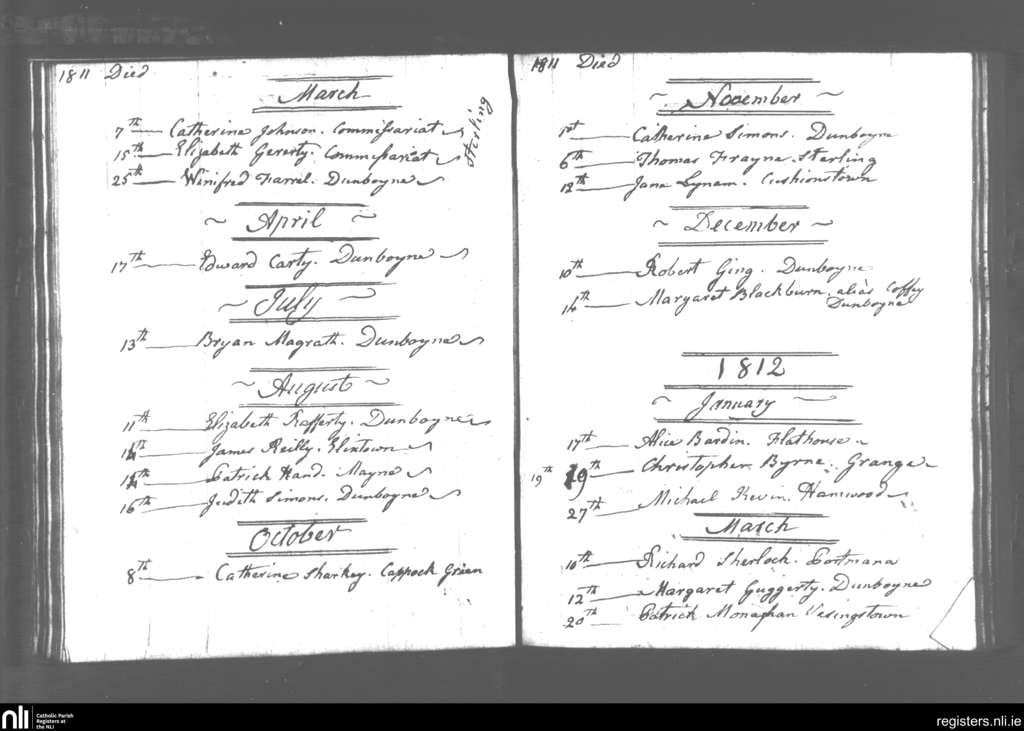 1811 Died
March
7th Catherine Johnson. Commissariat
15th Elizabeth Gererty. Commissariat
Sterling
25th Winifred Farrel. Dunboyne
~ April ~
17th Edward Carty. Dunboyne
~ July ~
13th Bryan Magrath. Dunboyne
~ August ~
11th Elizabeth Rafferty. Dunboyne
14th James Reilly.
14th Patrick Hand. Mayne
16th Judith Simons. Dunboyne
October
8th Catherine Sharkey. Cappock Green
1811 Died
~ November ~
1st Catherine Simons. Dunboyne
6th Thomas Frayne. Sterling
12th Jane Lynam. Cushionstown
~ December ~
10th Robert Ging. Dunboyne
14th Margaret Blackburn, alias Coffey
Dunboyne
1812
~ January ~
17th Alice Bardin. Flathouse
19th 19th Christopher Byrne. Grange
27th Michael Kevin. Hamwood
March
10th Richard Sherlock. Portmana
12th Margaret Guggerty. Dunboyne
20th Patrick Monaghan Vesingstown
nli Catholic Parish
Registers at
the NLI
registers.nli.ie